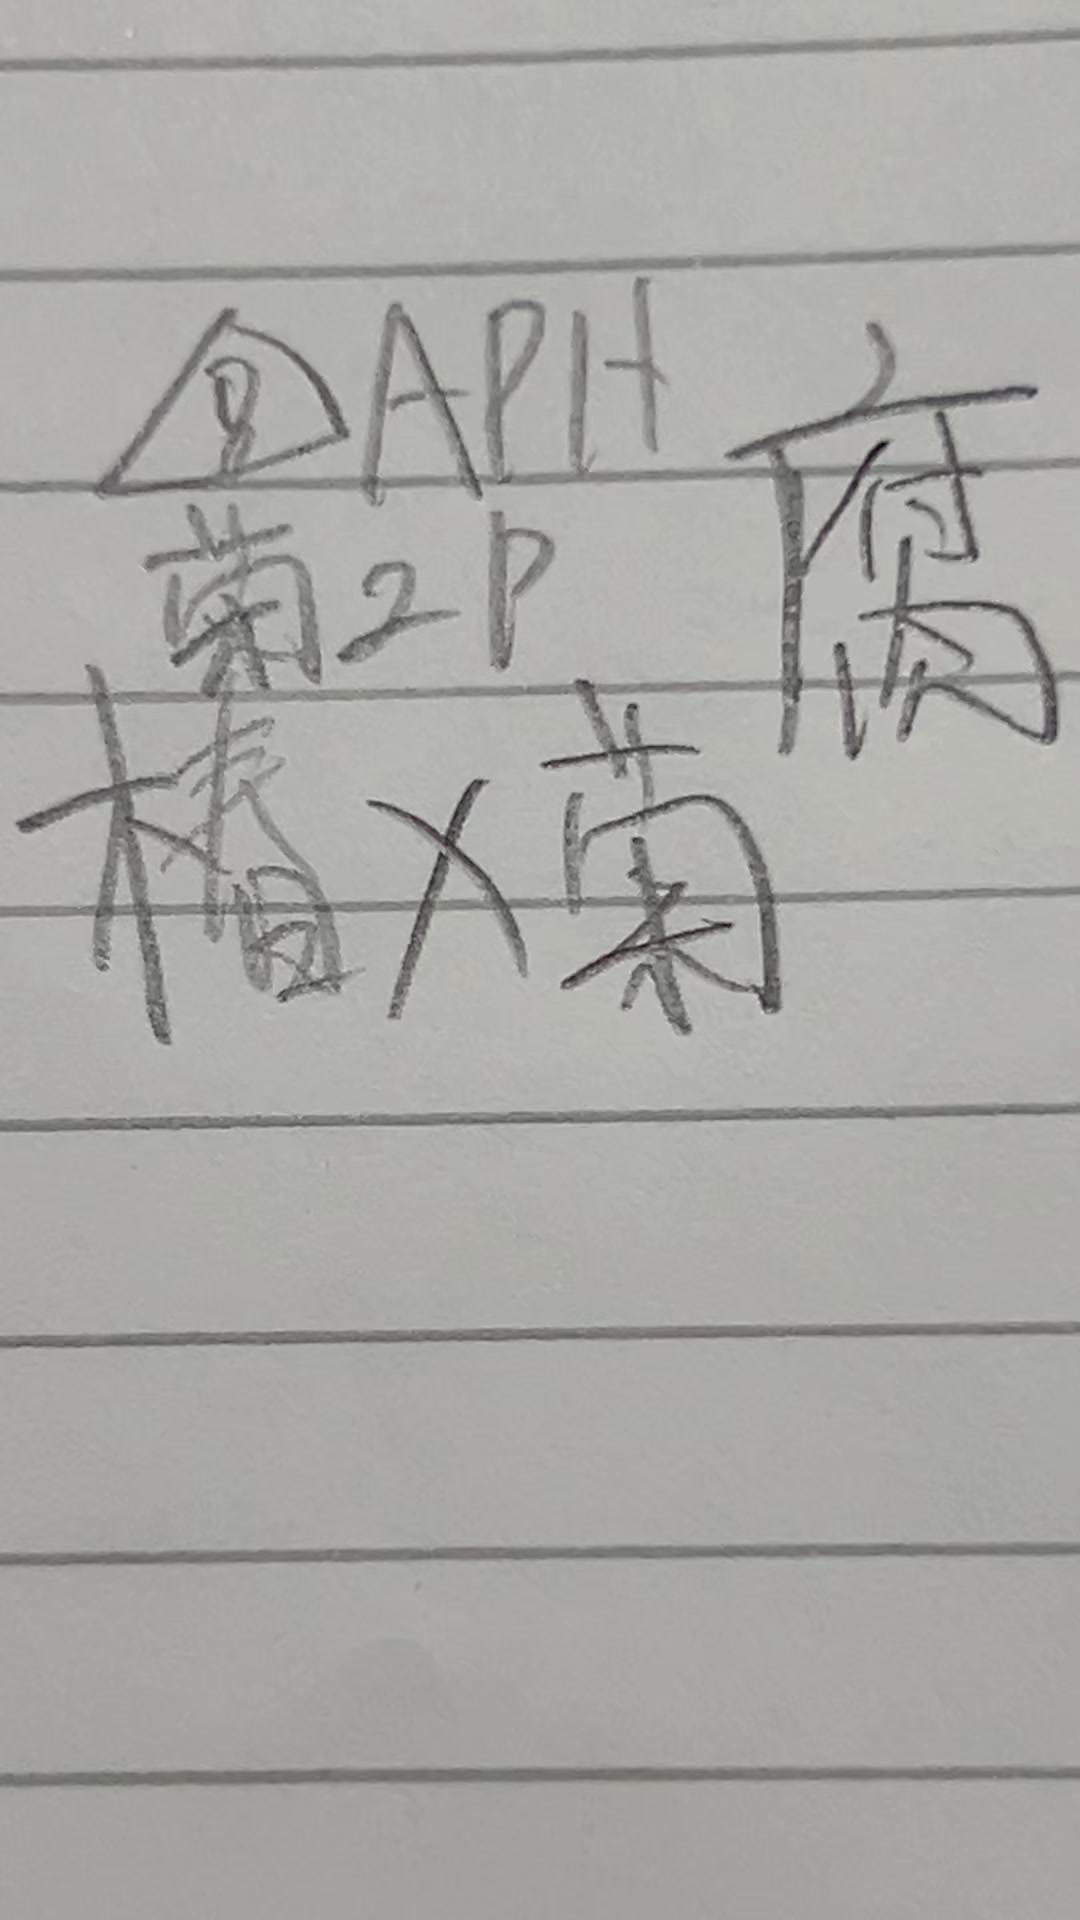 APH
菊2P
椿×菊
腐